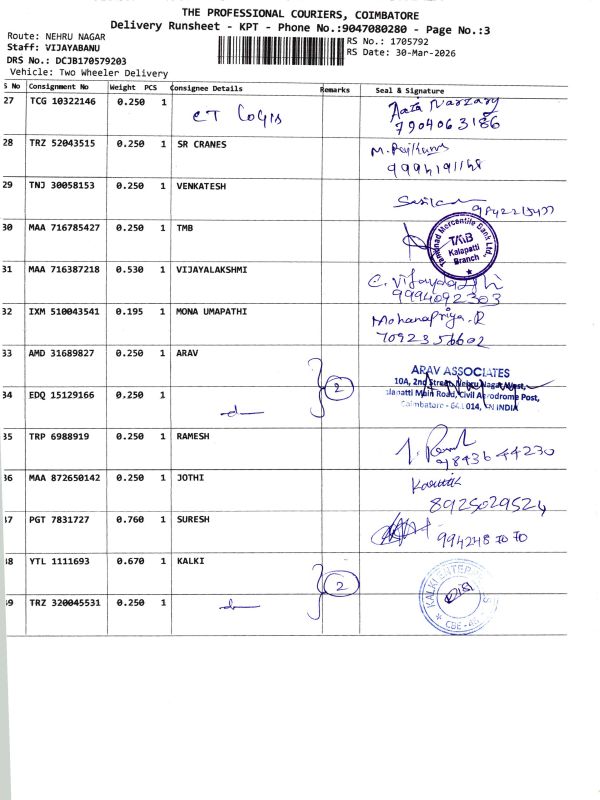 THE PROFESSIONAL COURIERS, COIMBATORE
Delivery Runsheet - KPT - Phone No.:9047080280 - Page No.:3
Route: NEHRU NAGAR
RS No.: 1705792
Staff: VIJAYABANU
RS Date: 30-Mar-2026
DRS No.: DCJB170579203
Vehicle: Two Wheeler Delivery
S No Consignment No Weight PCS Consignee Details Remarks Seal & Signature
27 TCG 10322146 0.250 1 CT Logis
7904063186
28 TRZ 52043515 0.250 1 SR CRANES M. Rajkumar
29 TNJ 30058153 0.250 1 VENKATESH
30 MAA 716785427 0.250 1 TMB Tamilnad Mercantile Bank Ltd., TMB Kalapatti Branch
31 MAA 716387218 0.530 1 VIJAYALAKSHMI C. Vijayalakshmi
9994092303
32 IXM 510043541 0.195 1 MONA UMAPATHI Mohanapriya.R
7092356602
33 AMD 31689827 0.250 1 ARAV 2 ARAV ASSOCIATES
10A, 2nd Street, Nehru Nagar West,
Kalapatti Main Road, Civil Aerodrome Post,
Coimbatore - 641 014, TN INDIA
34 EDQ 15129166 0.250 1
35 TRP 6988919 0.250 1 RAMESH
9843644230
36 MAA 872650142 0.250 1 JOTHI Karthik
8925029524
37 PGT 7831727 0.760 1 SURESH
9942487070
38 YTL 1111693 0.670 1 KALKI 2 KALKI ENTERPRISES
39 TRZ 320045531 0.250 1